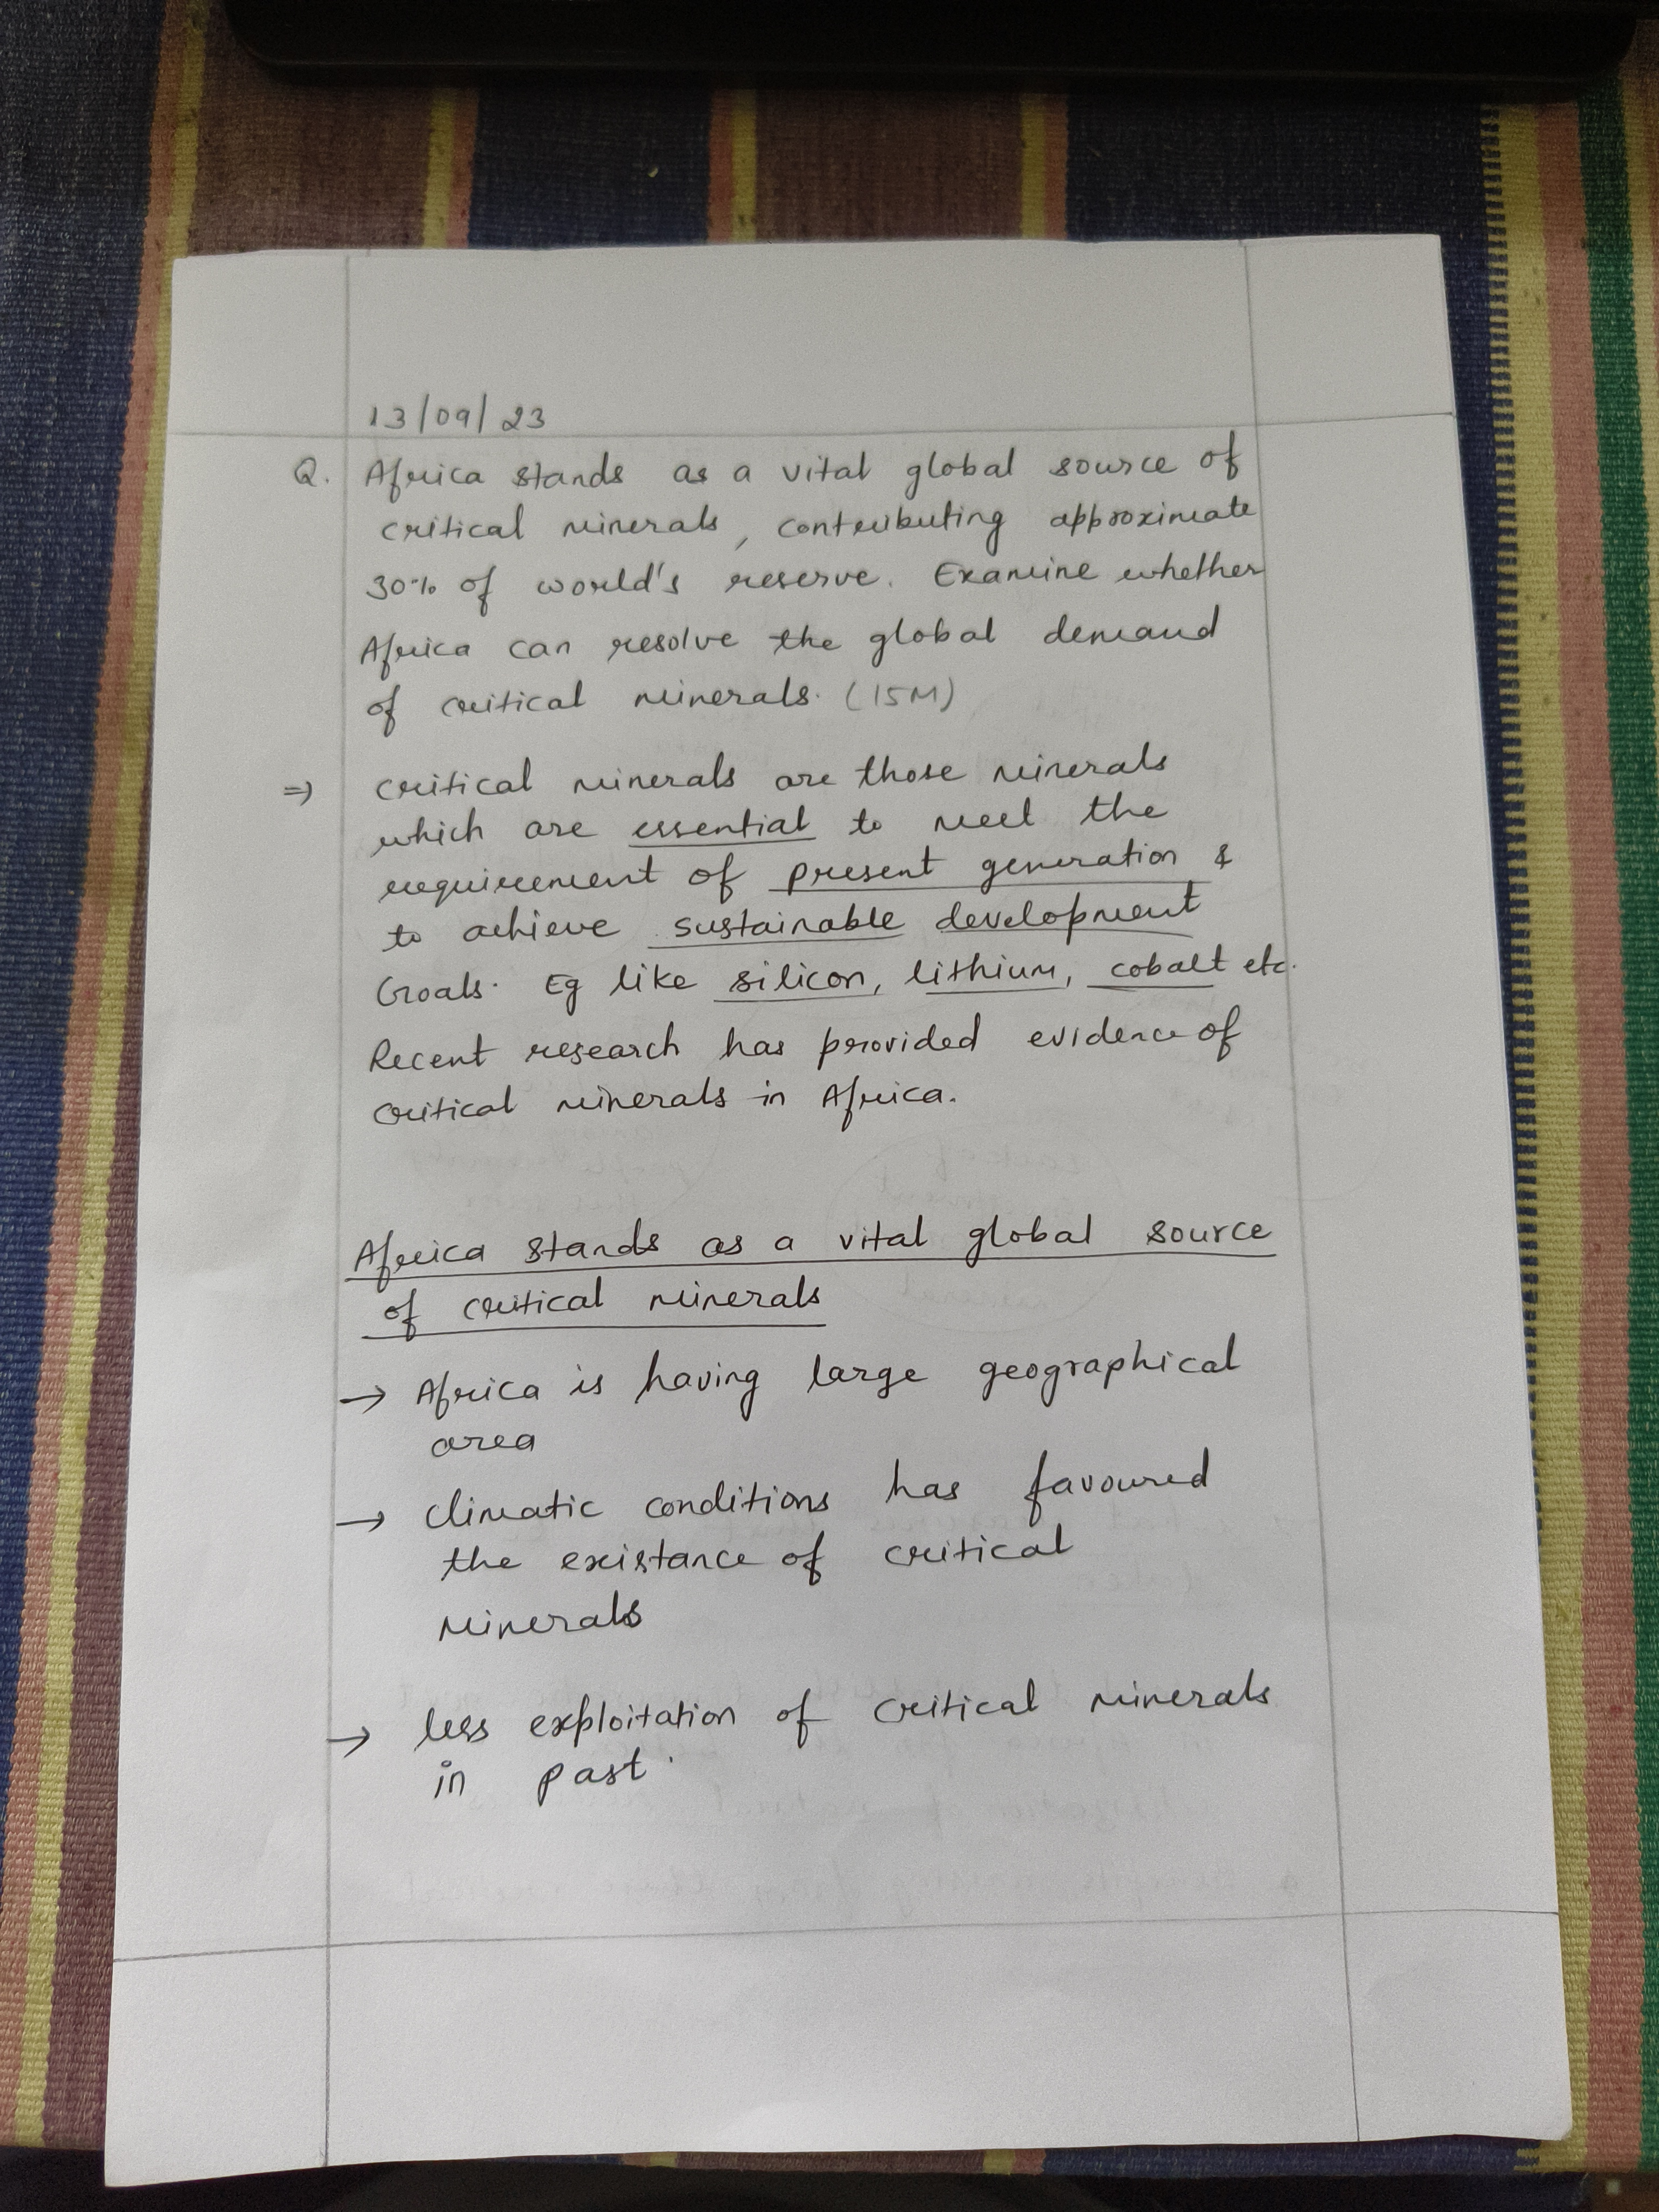 13/09/23
Q. Africa stands as a vital global source of
critical minerals, contributing approximate
30% of world's reserve. Examine whether
Africa can resolve the global demand
of critical minerals. (15M)
=> critical minerals are those minerals
which are essential to meet the
requirement of present generation &
to achieve sustainable development
Goals. Eg like silicon, lithium, cobalt etc.
Recent research has provided evidence of
critical minerals in Africa.
Africa stands as a vital global source
of critical minerals
→ Africa is having large geographical
area
→ climatic conditions has favoured
the existance of critical
minerals
→ less exploitation of critical minerals
in past.